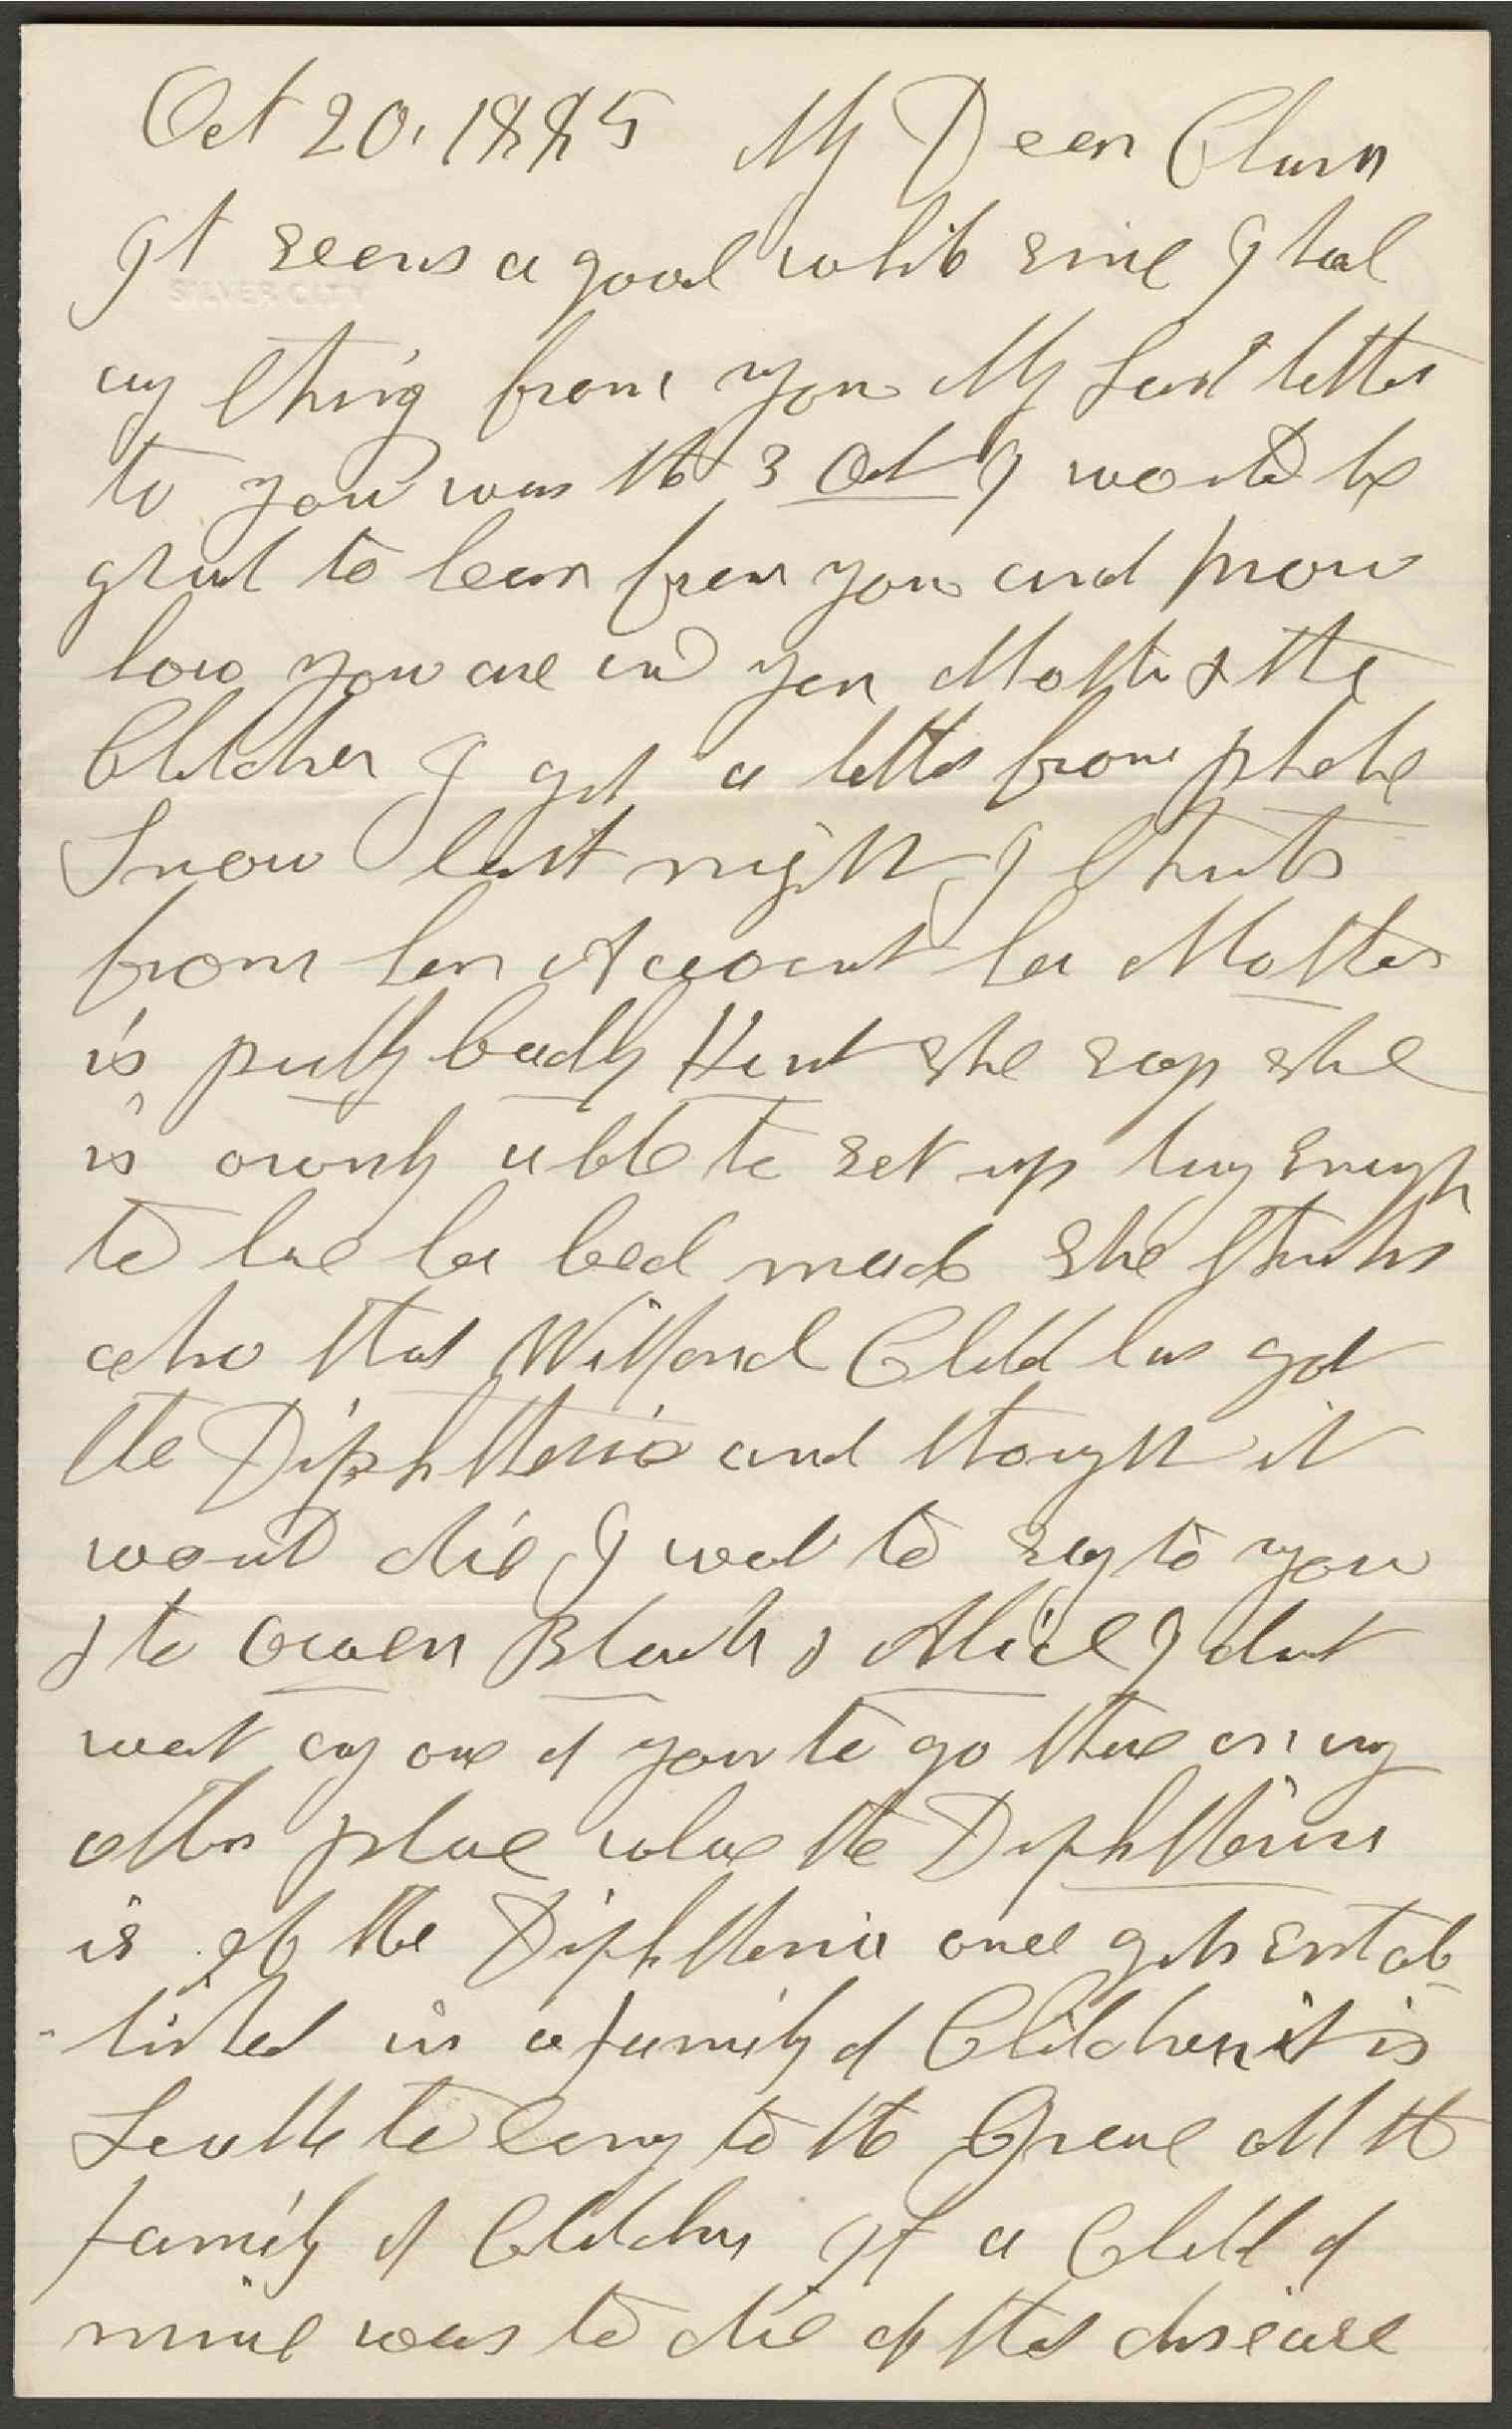 Oct 20, 1885 My Dear Clara
It seems a good while since I had
any thing from you My Last letter
to you was the 3 Oct I would be
glad to hear from you and know
how you are and your Mother & the
Children I got a letter from Phebe
Snow last night, I think
from her Account her Mother
is pretty badly Hurt she says she
is only able to set up long enough
to have her bed made She thinks
also that Wilford Child has got
the Diphtheria and thought it
would die I want to say to you
& to Owen Blanch & Alice I dont
want any one of you to go there or any
other place whare the Diphtheria
is If the Diphtheria once gets Estab-
-lished in a family of Children it is
Liable to carry to the Grave All the
family of Children If a Child of
mine was to die of that disease
SILVER CITY